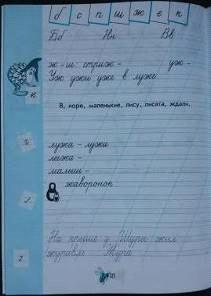 б с п ш ж е к
Бб Нн Вв
ж - ш: стриж - уж -
Уж ужи уже в луже
В, норе, маленькие, лису, лисята, ждали.
лужа - лужи
лыжа -
малыш -
жаворонок
На крыше у Шуры жил
журавль Жура